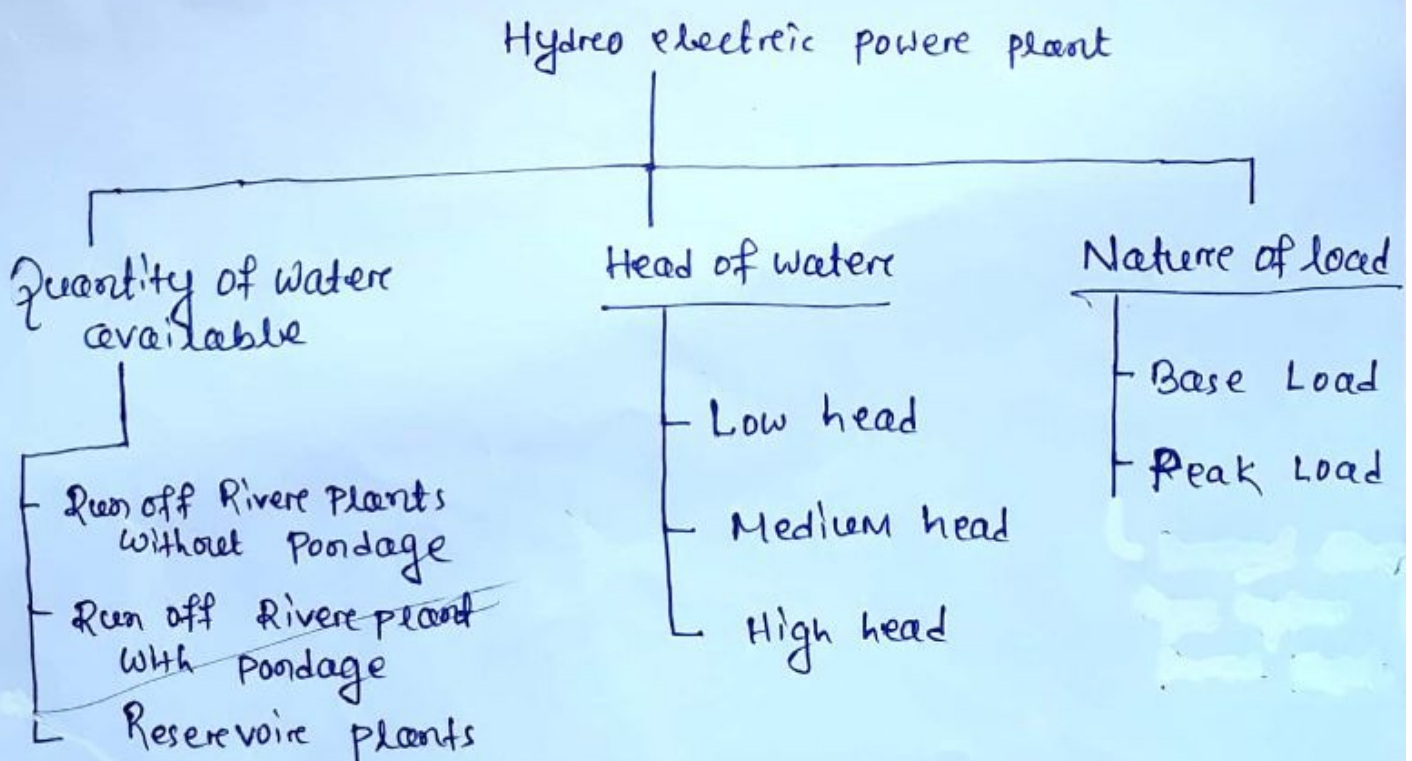 Hydreo electreic powere plant
Quantity of watere
available
Run off Rivere Plants
Without Pondage
Run off Rivere plant
With pondage
Reserevoire plants
Head of watere
Low head
Medium head
High head
Nature of load
Base Load
Peak Load